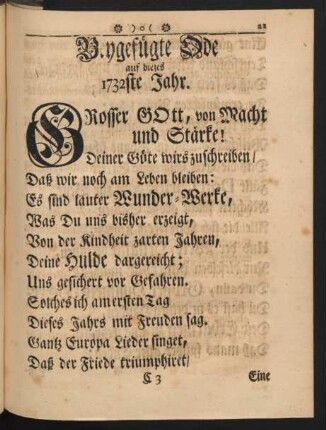 ☼ )o( ☼ 21
B.ygefügte Ode
auf dieses
1732ste Jahr.
GRosser GOtt, von Macht
und Stärke!
Deiner Güte wirs zuschreiben/
Daß wir noch am Leben bleiben:
Es sind lauter Wunder-Werke,
Was Du uns bisher erzeigt,
Von der Kindheit zarten Jahren,
Deine Hulde dargereicht;
Uns gesichert vor Gefahren.
Solches ich am ersten Tag
Dieses Jahrs mit Freuden sag.
Gantz Europa Lieder singet,
Daß der Friede triumphiret/
C 3 Eine